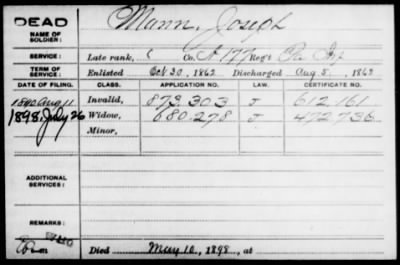 DEAD
NAME OF SOLDIER: Mann, Joseph
SERVICE: Late rank, Co. A 177 Reg't Pa Inf
TERM OF SERVICE: Enlisted Oct 30, 1862 Discharged Aug 5, 1863
DATE OF FILING. CLASS. APPLICATION NO. LAW. CERTIFICATE NO.
1890 Aug 11 Invalid, 873.303 J 612.161
1898, July 26 Widow, 680.278 J 472.736
Minor,
ADDITIONAL SERVICES:
REMARKS:
Died May 10, 1898, at